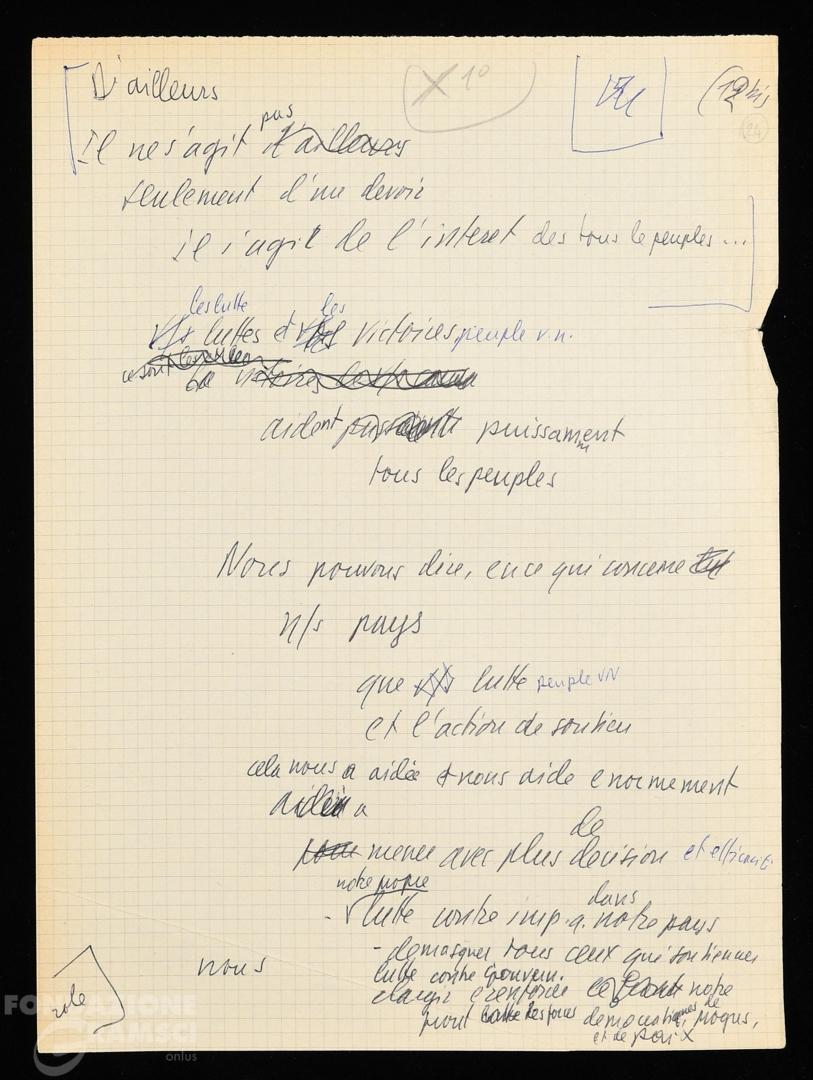 D'ailleurs
X 10
VN
(12 bis
24
Il ne s'agit pas d'ailleurs
seulement d'une devoir
il s'agit de l'interet des tous le peuples...
les lutte les
luttes et victoires peuple v.n.
ce sont
aident puissamment
tous les peuples
Nous pouvons dire, en ce qui concerne
n/s pays
que lutte peuple VN
et l'action de soutien
cela nous a aidée et nous aide enormement
aider a
de
pour mener avec plus decision et efficacité
notre propre
- lutte contre imp. a. dans notre pays
- demasquer tous ceux qui soutiennent
nous
lutte contre gouvern.
elargir e renforce notre
role
front forces democratiques, de progres,
et de paix
FONDAZIONE
GRAMSCI
onlus